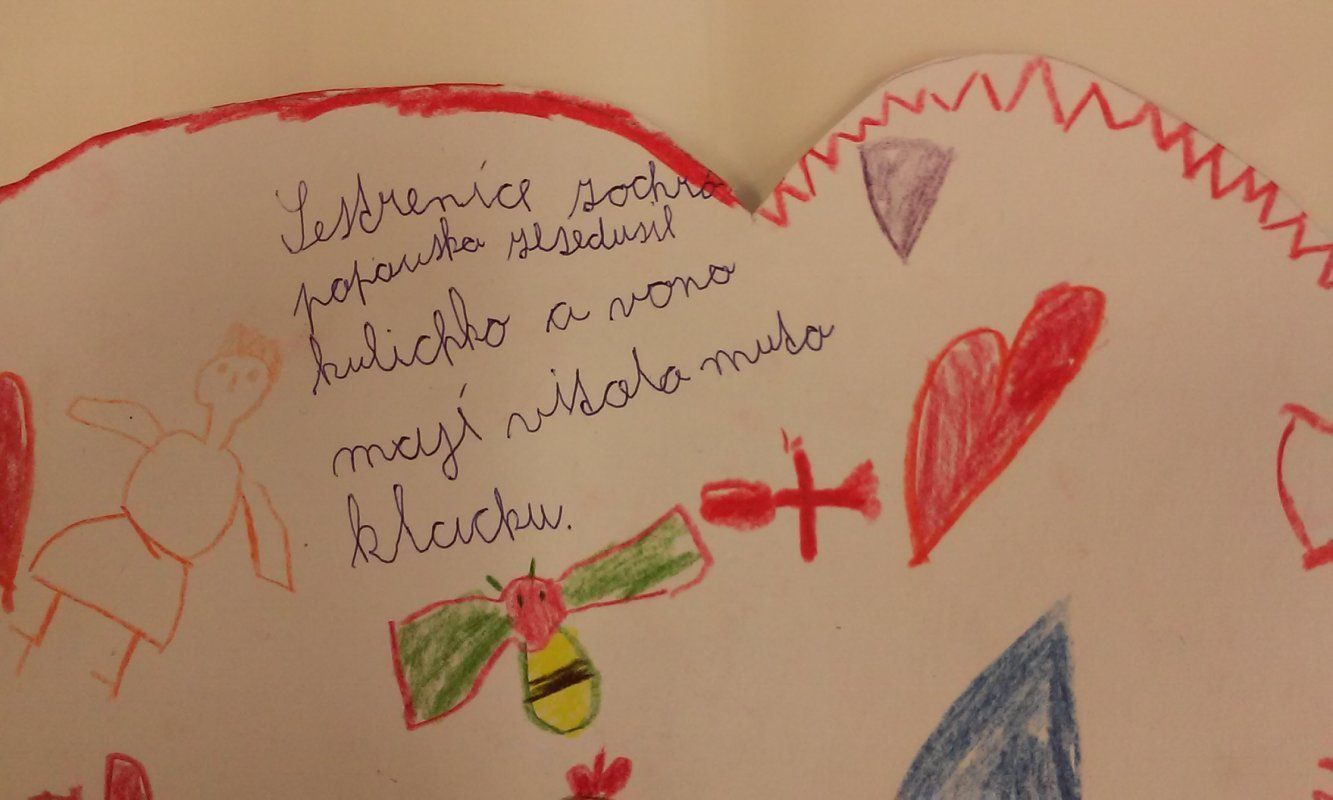 Sestřenice zochrá
papouska zesedusil
kulichko a vono
mají visala muta
klacku.